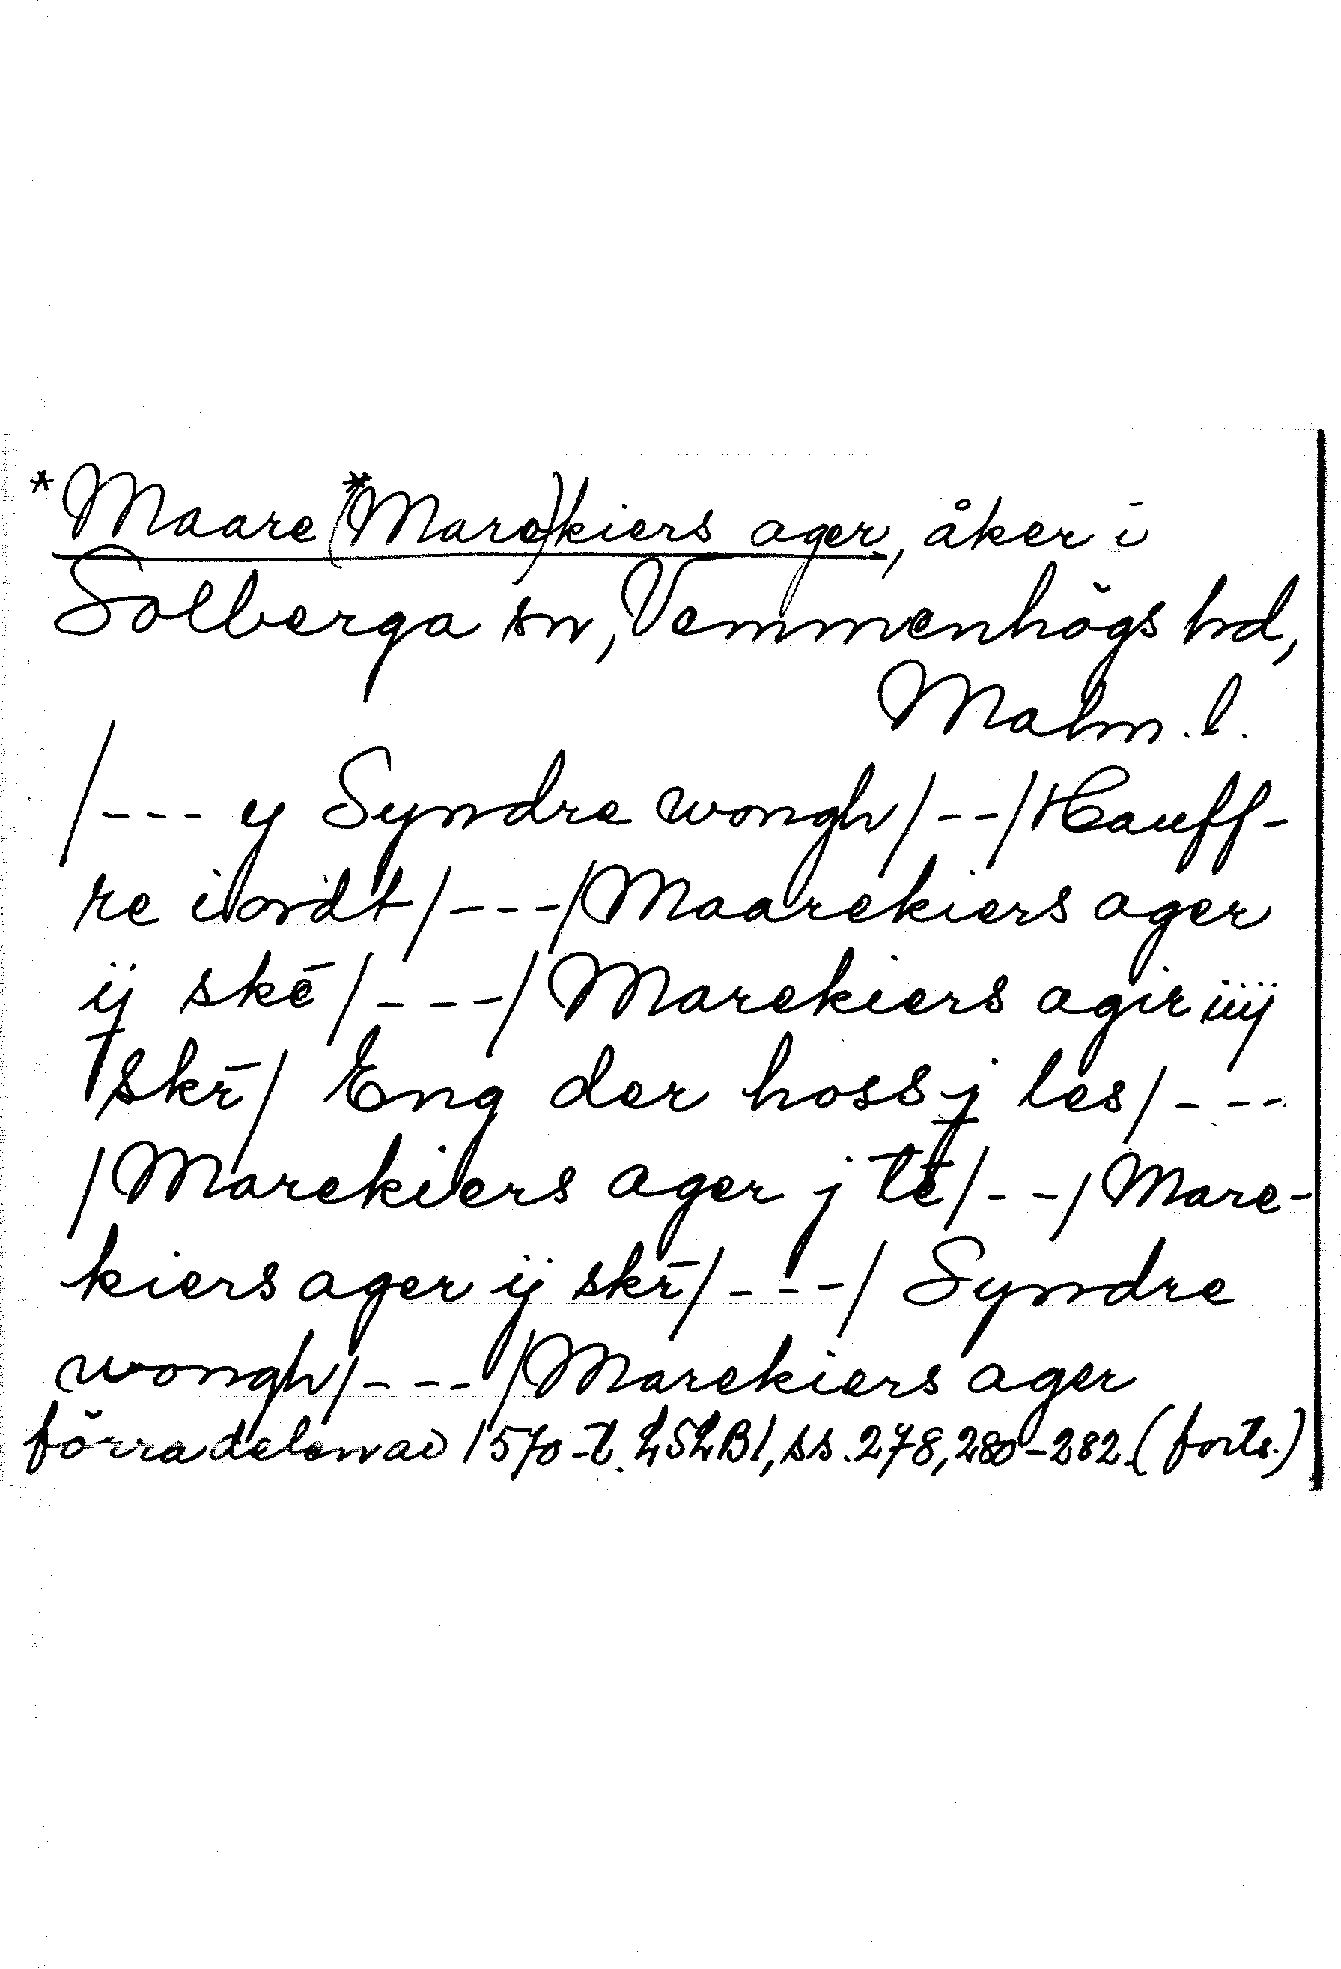 *Maare(*Mare)kiers ager, åker i
Solberga sn, Vemmenhögs hd,
Malm. l.
/--- y Syndre wongh/--/Hauff-
re iordt/---/Maarekiers ager
ij skē/---/Marekiers agir iiij
skr̄/ Eng der hoss j les/---
/Marekiers ager j tē/--/Mare-
kiers ager ij skr̄/---/ Syndre
wongh/---/Marekiers ager
förra delen av 1570-t. LSLB1, ss. 278, 280-282. (forts.)